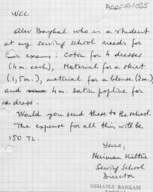 WCC
Alev Bayhal who is a student
at my sewing school needs for
her exams: Coton for 4 dresses
(4 m. each), Material for a shirt
(1,5m.), material for a blouse (2m.)
and 4m. satin popline for
a dress.
Would you send these to the school.
The expense for all this will be
150 TL.
Yours,
Neriman Hattı
Sewing School
Director